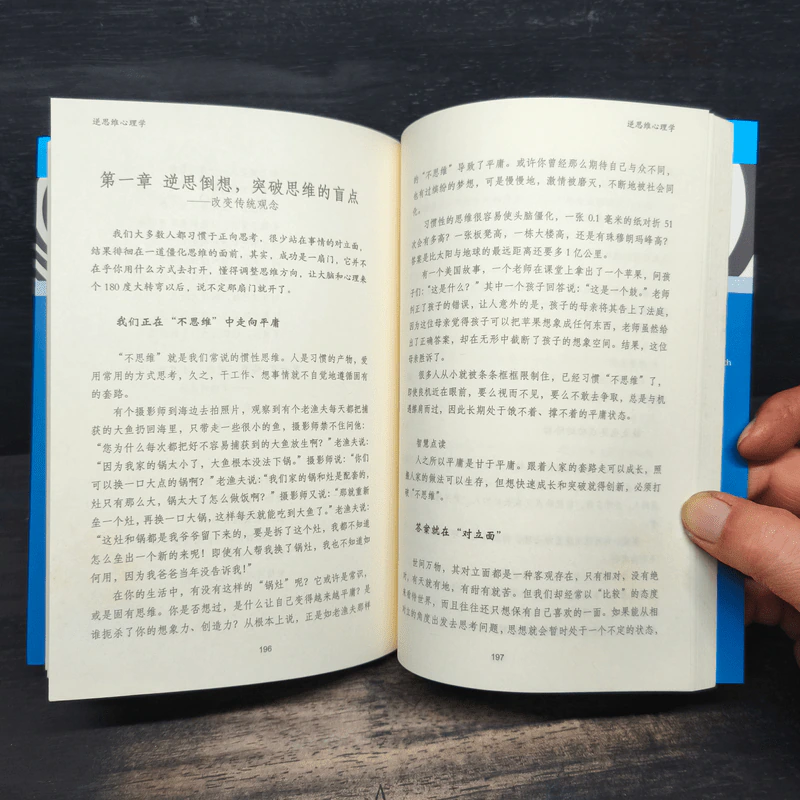 逆思维心理学
第一章 逆思倒想，突破思维的盲点
——改变传统观念
我们大多数人都习惯于正向思考，很少站在事情的对立面，
结果徘徊在一道僵化思维的面前，其实，成功是一扇门，它并不
在乎你用什么方式去打开，懂得调整思维方向，让大脑和心理来
个 180 度大转弯以后，说不定那扇门就开了。
我们正在“不思维”中走向平庸
“不思维”就是我们常说的惯性思维。人是习惯的产物，爱
用常用的方式思考，久之，干工作、想事情就不自觉地遵循固有
的套路。
有个摄影师到海边去拍照片，观察到有个老渔夫每天都把捕
获的大鱼扔回海里，只带走一些很小的鱼，摄影师禁不住问他：
“您为什么每次都把好不容易捕获到的大鱼放生啊？”老渔夫说：
“因为我家的锅太小了，大鱼根本没法下锅。”摄影师说：“你们
可以换一口大点的锅啊？”老渔夫说：“我们家的锅和灶是配套的，
灶只有那么大，锅太大了怎么做饭啊？”摄影师又说：“那就重新
垒一个灶，再换一口大锅，这样每天就能吃到大鱼了。”老渔夫说：
“这灶和锅都是我爷爷留下来的，要是拆了这个灶，我都不知道
怎么垒出一个新的来呢！即使有人帮我换了锅，我也不知道如
何用，因为我爸爸当年没告诉我！”
在你的生活中，有没有这样的“锅灶”呢？它或许是常识，
或是固有思维。你是否想过，是什么让自己变得越来越平庸？是
谁扼杀了你的想象力、创造力？从根本上说，正是如老渔夫那样
196
逆思维心理学
的“不思维”导致了平庸。或许你曾经那么期待自己与众不同，
也有过缤纷的梦想，可是慢慢地，激情被磨灭，不断地被社会同
化。
习惯性的思维很容易使头脑僵化，一张 0.1 毫米的纸对折 51
次会有多高？一张板凳高，一栋大楼高，还是有珠穆朗玛峰高？
答案是比太阳与地球的最远距离还要多 1 亿公里。
有一个美国故事，一个老师在课堂上拿出了一个苹果，问孩
子们：“这是什么？”其中一个孩子回答说：“这是一个鼓。”老师
纠正了孩子的错误，让人意外的是，孩子的母亲将其告上了法庭，
因为这位母亲觉得孩子可以把苹果想象成任何东西，老师虽然给
出了正确答案，却在无形中截断了孩子的想象空间。结果，这位
母亲胜诉了。
很多人从小就被条条框框限制住，已经习惯“不思维”了，
即使良机近在眼前，要么视而不见，要么不敢去争取，总是与机
遇擦肩而过，因此长期处于饿不着、撑不着的平庸状态。
智慧点读
人之所以平庸是甘于平庸。跟着人家的套路走可以成长，照
搬人家的做法可以生存，但想快速成长和突破就得创新，必须打
破“不思维”。
答案就在“对立面”
世间万物，其对立面都是一种客观存在，只有相对，没有绝
对，有天就有地，有甜就有苦。但我们却经常以“比较”的态度
来看待世界，而且往往还只想保有自己喜欢的一面。如果能从相
对立的角度出发去思考问题，思想就会暂时处于一个不定的状态，
197